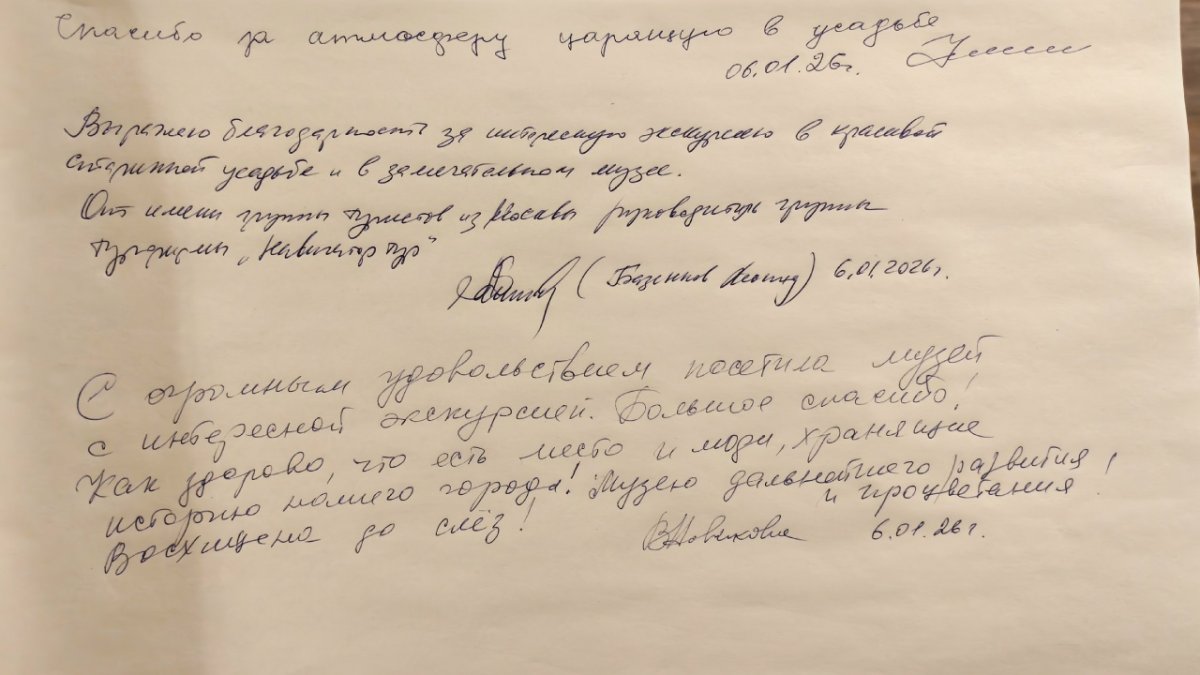 Спасибо за атмосферу царящую в усадьбе
06.01.26г.
Выражаю благодарность за интересную экскурсию в красивой
старинной усадьбе и в замечательном музее.
От имени группы туристов из Москвы руководитель группы
турфирмы „Навигатор тур"
(Базенков Леонид) 6.01.2026г.
С огромным удовольствием посетила музей
с интересной экскурсией. Большое спасибо!
Как здорово, что есть место и люди, хранящие
историю нашего города! Музею дальнейшего развития,
и процветания.
Восхищена до слёз!
ВНовикова 6.01.26г.